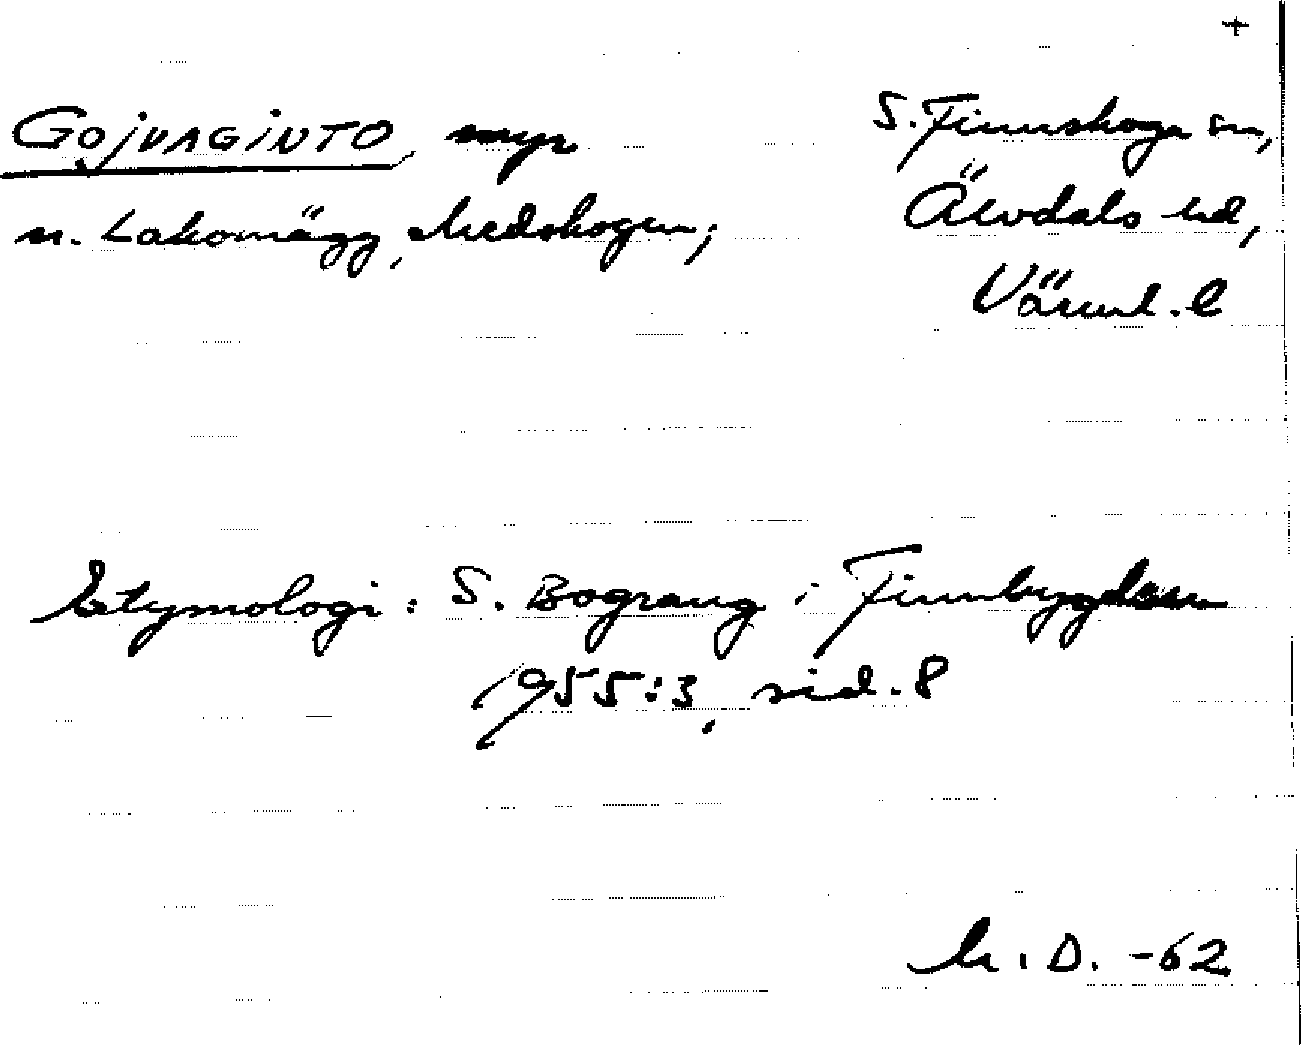 +
GOJVAGINTO, myr S. Finnskoga sn,
n. Lakomägg, Medskogen; Älvdals hd,
Värml. l
Etymologi: S. Bograng i Finnbygden
1955:3, sid. 8
M. D. -62